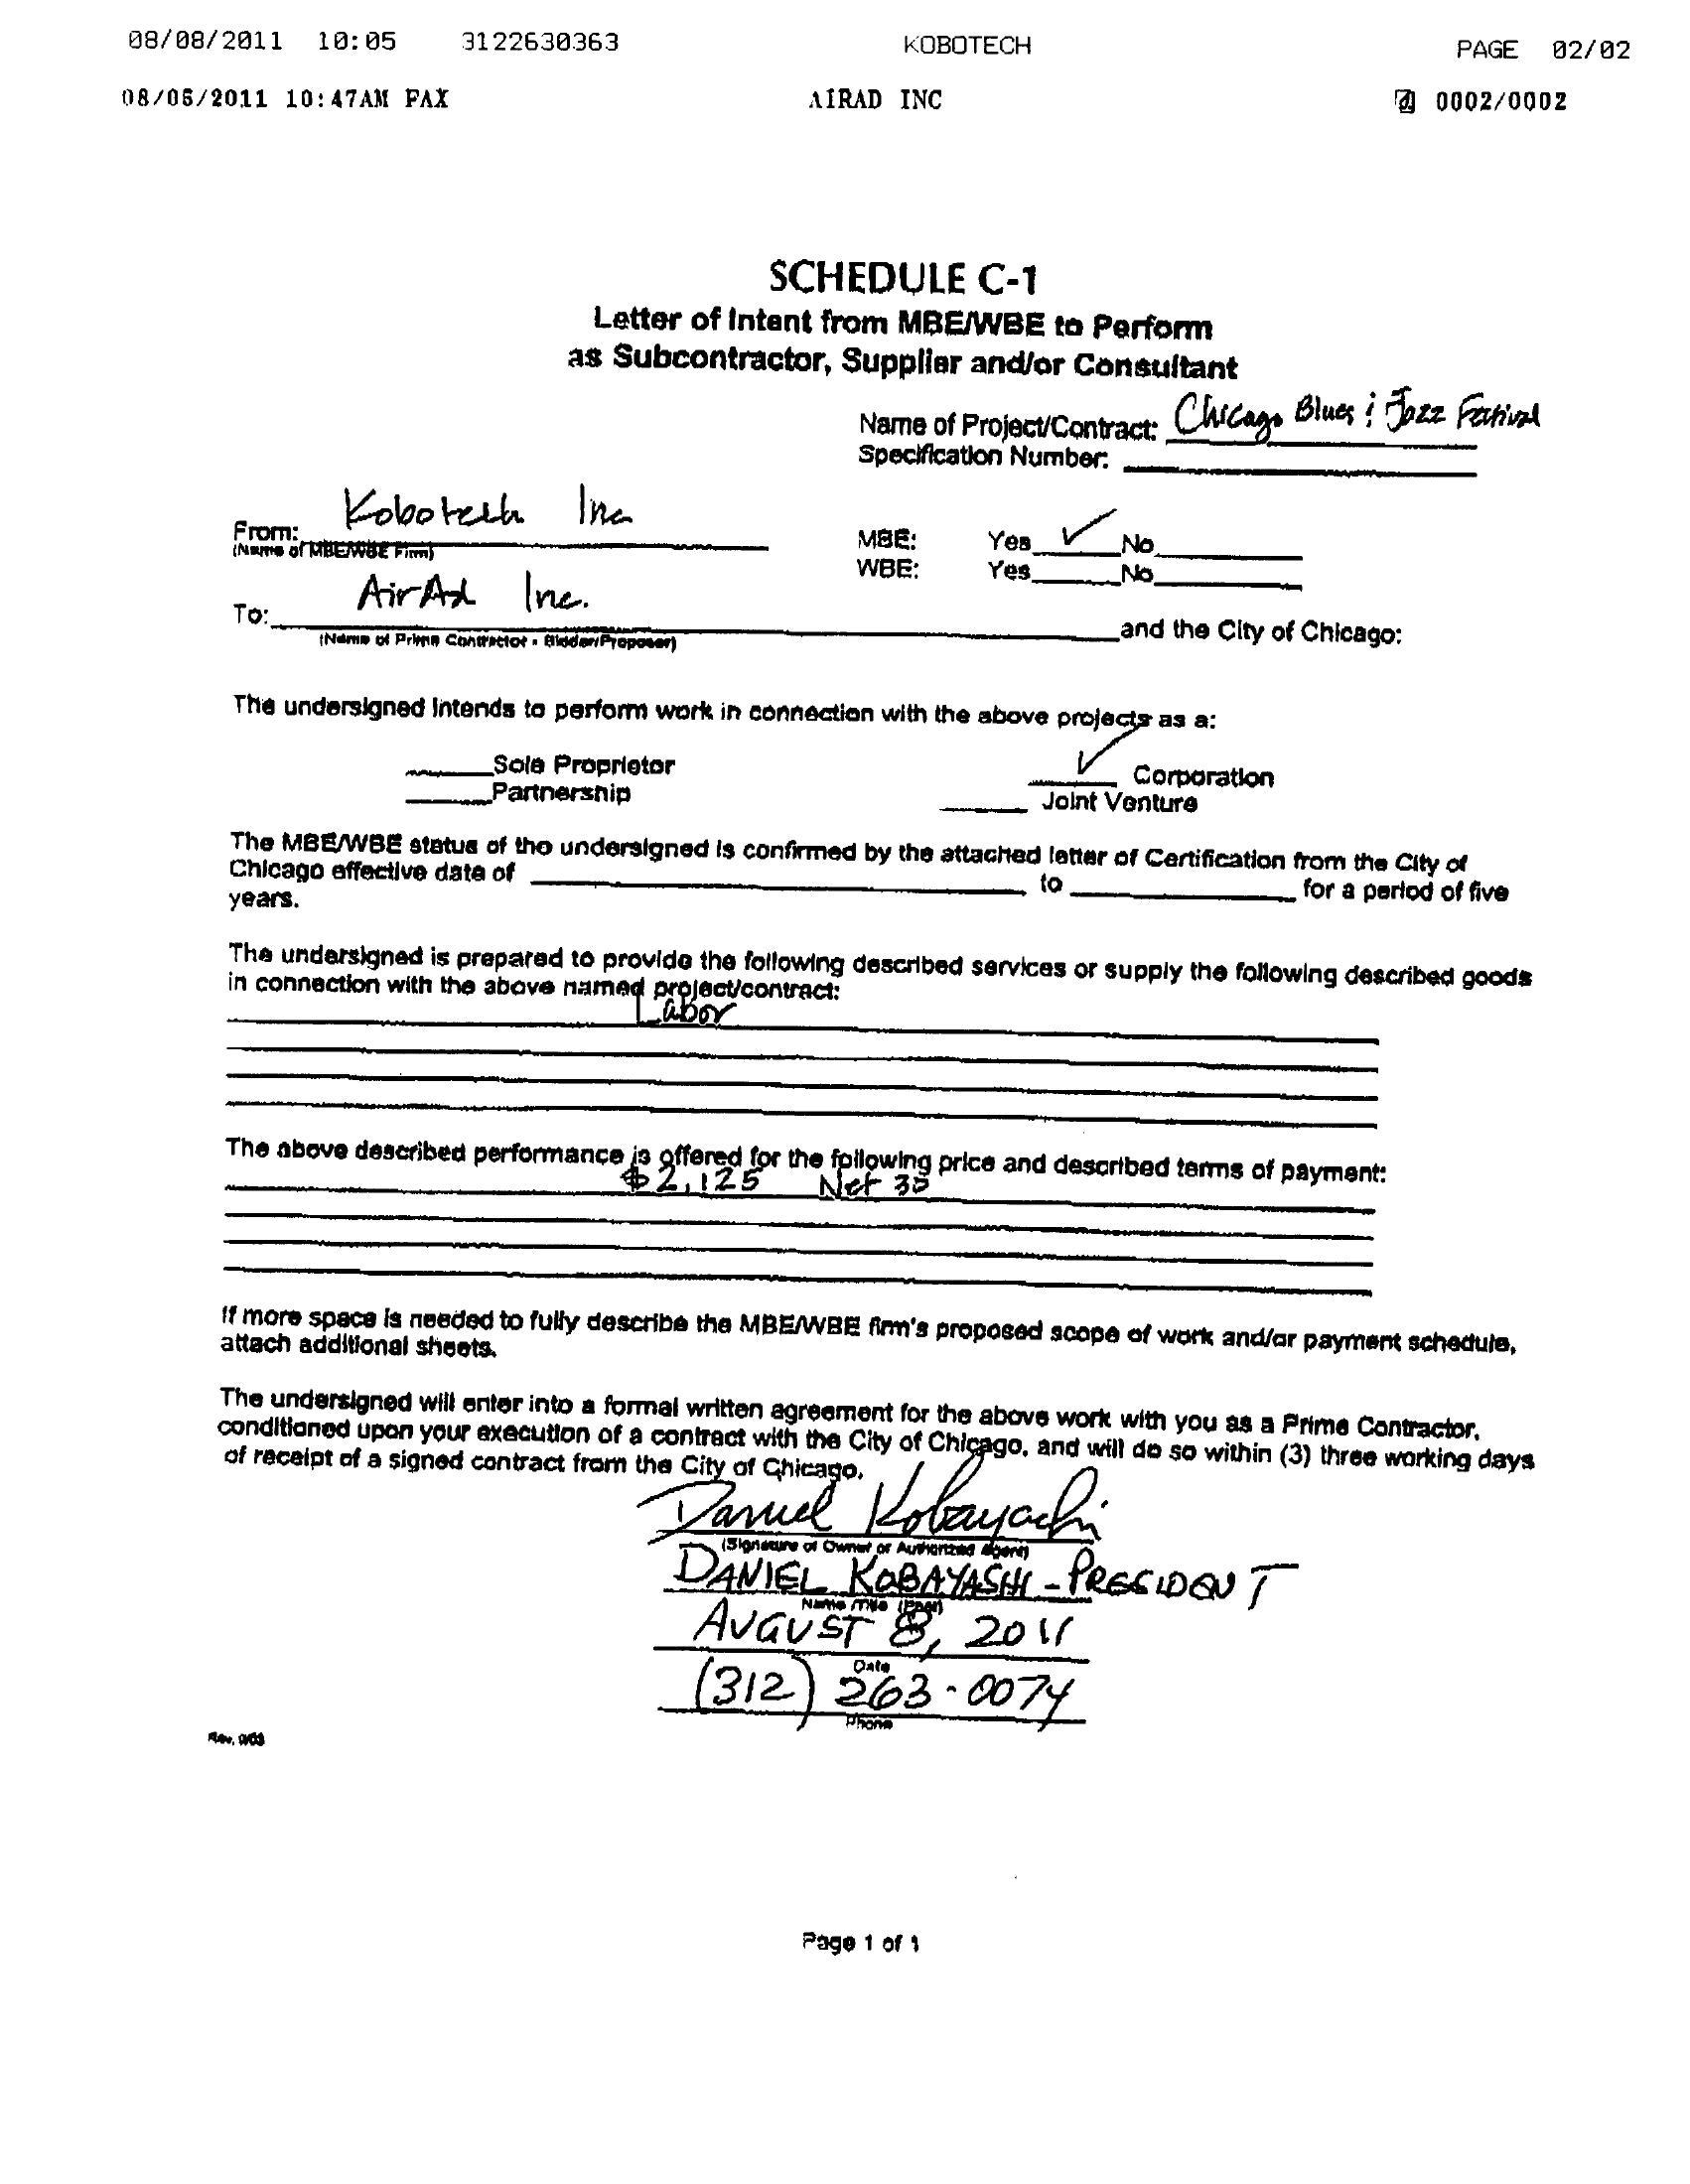 08/08/2011 10:05 3122630363 KOBOTECH PAGE 02/02
08/05/2011 10:47AM FAX AIRAD INC 0002/0002
SCHEDULE C-1
Letter of Intent from MBE/WBE to Perform
as Subcontractor, Supplier and/or Consultant
Name of Project/Contract: Chicago Blues & Jazz Festival
Specification Number:
From: Kobotech Inc
(Name of MBE/WBE Firm)
MBE: Yes ✓ No
WBE: Yes No
To: AirAd Inc. and the City of Chicago:
(Name of Prime Contractor - Bidder/Proposer)
The undersigned intends to perform work in connection with the above projects as a:
Sole Proprietor ✓ Corporation
Partnership Joint Venture
The MBE/WBE status of the undersigned is confirmed by the attached letter of Certification from the City of
Chicago effective date of to for a period of five
years.
The undersigned is prepared to provide the following described services or supply the following described goods
in connection with the above named project/contract:
Labor
The above described performance is offered for the following price and described terms of payment:
$2,125 Net 30
If more space is needed to fully describe the MBE/WBE firm's proposed scope of work and/or payment schedule,
attach additional sheets.
The undersigned will enter into a formal written agreement for the above work with you as a Prime Contractor,
conditioned upon your execution of a contract with the City of Chicago, and will do so within (3) three working days
of receipt of a signed contract from the City of Chicago.
Daniel Kobayashi
(Signature of Owner or Authorized Agent)
DANIEL KOBAYASHI - PRESIDENT
Name /Title (Print)
AUGUST 8, 2011
Date
(312) 263-0074
Phone
Rev. 9/03
Page 1 of 1